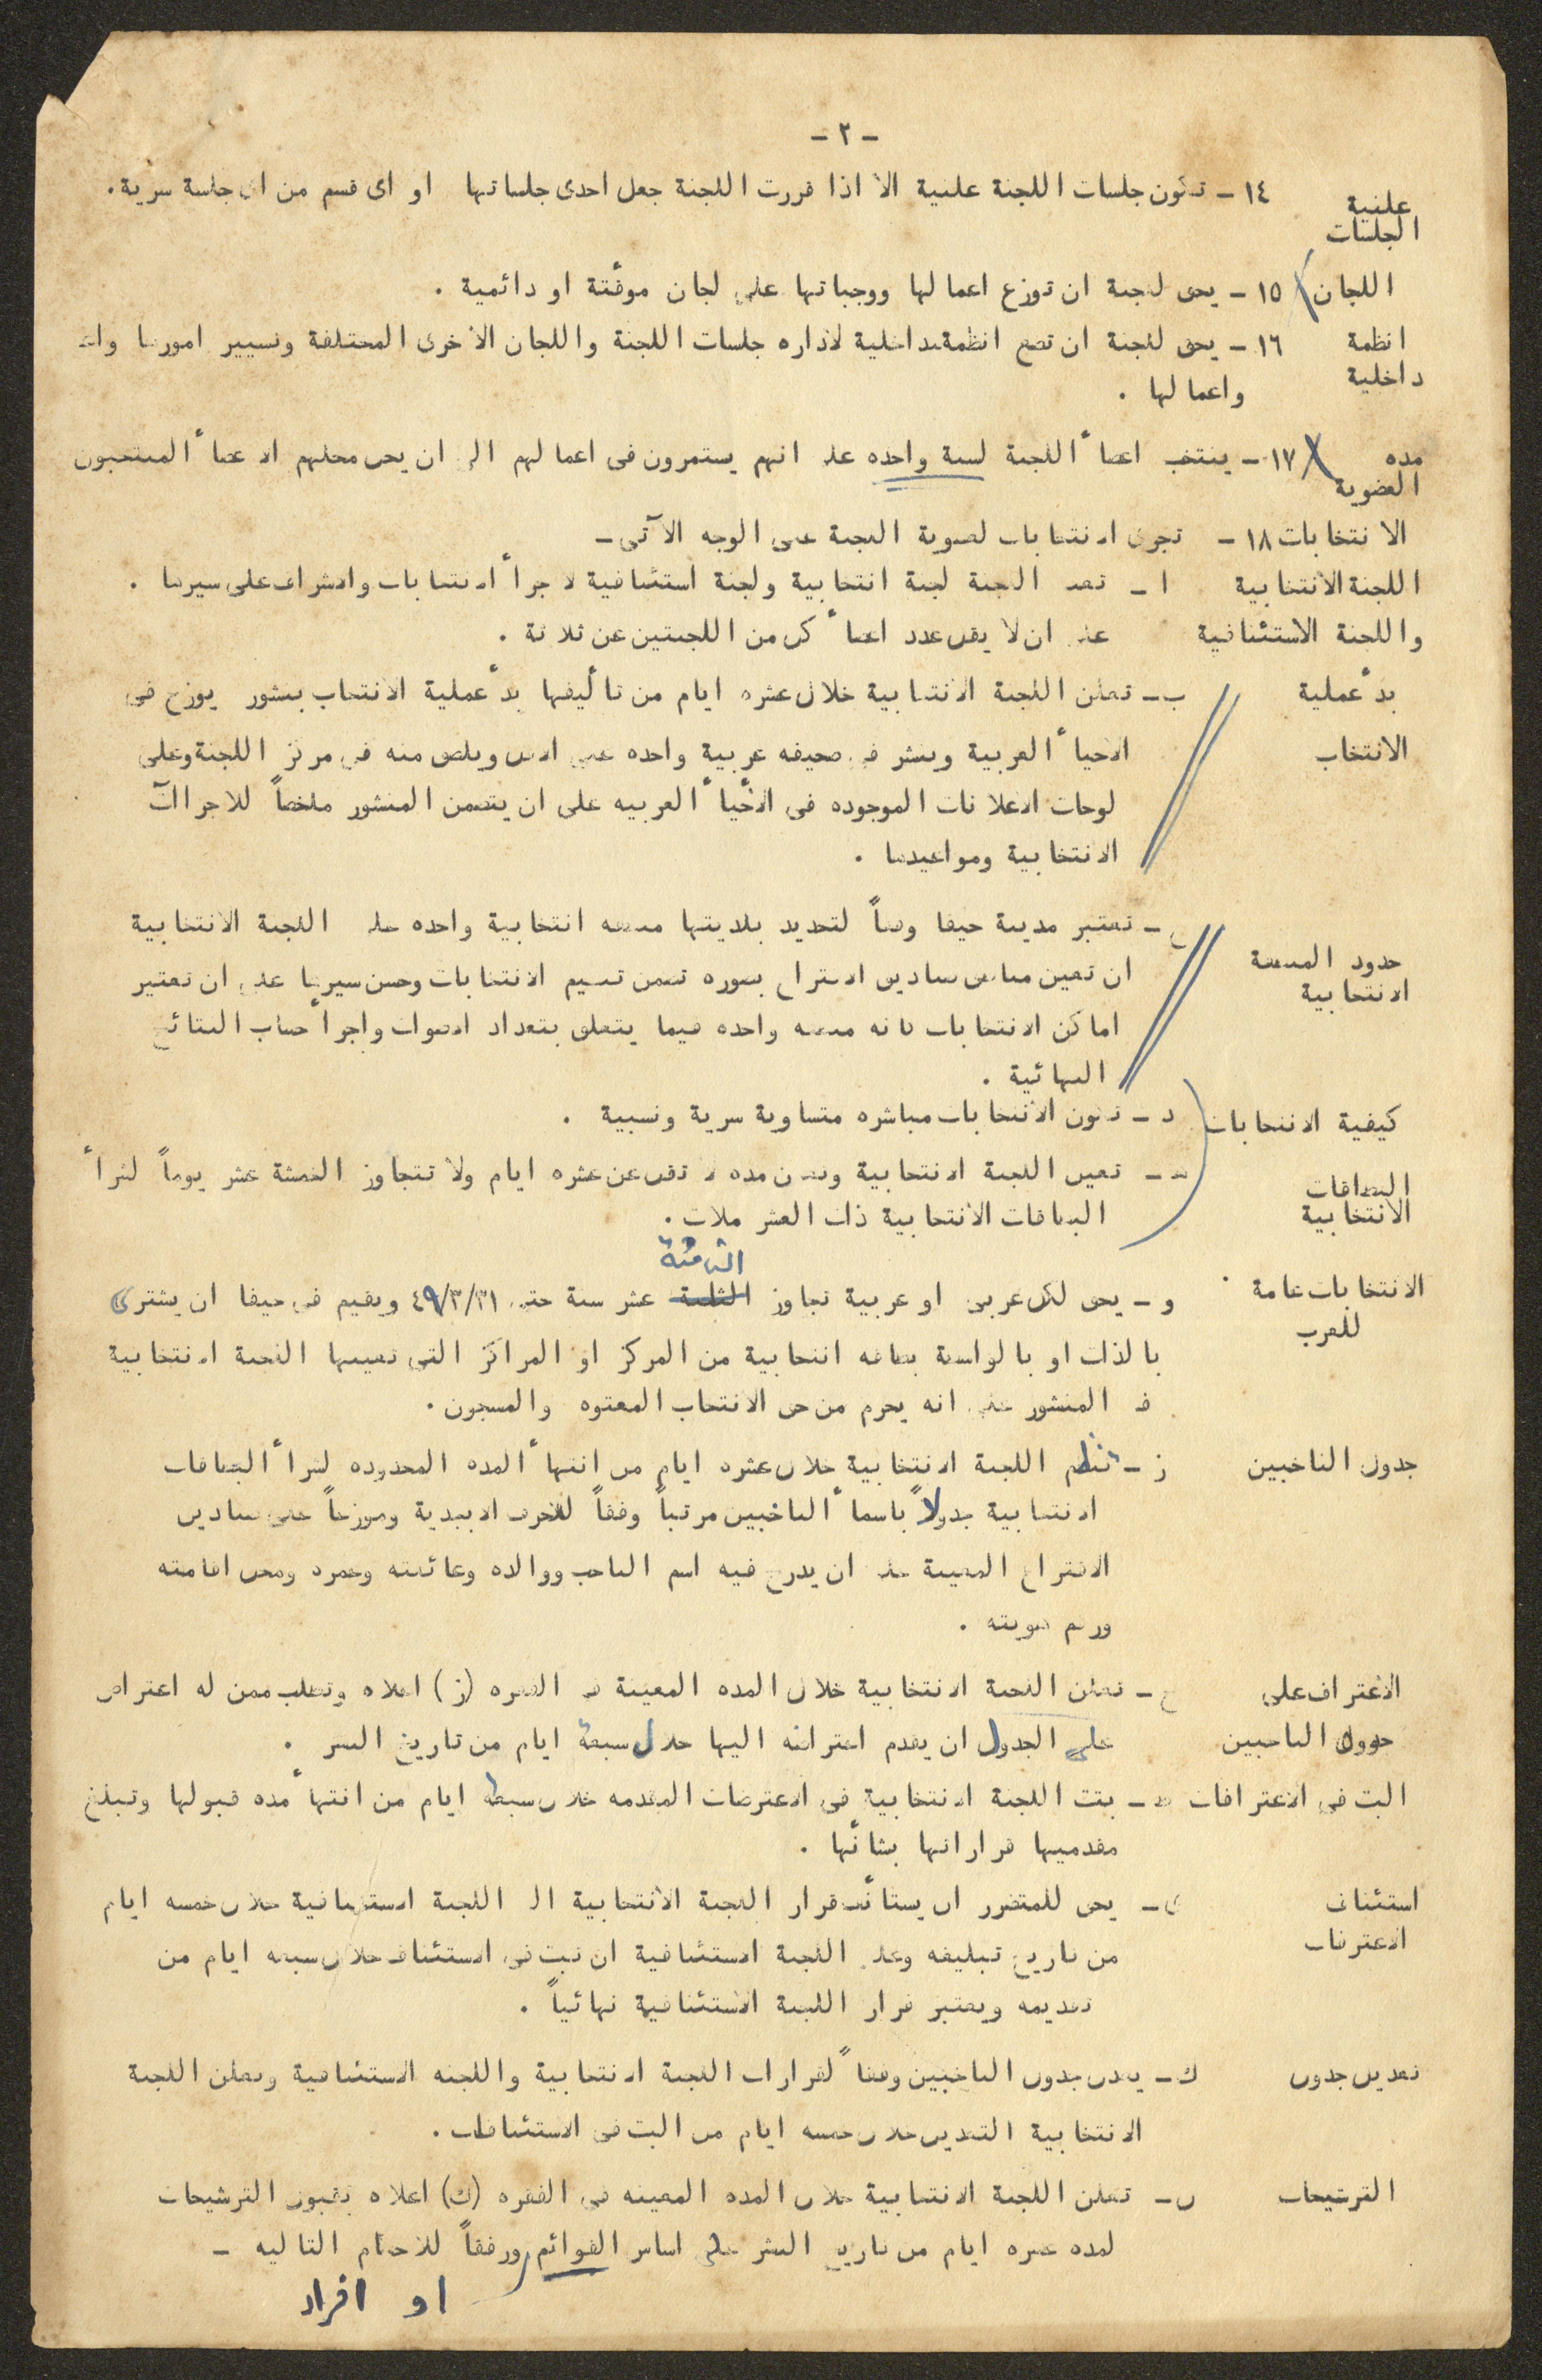 - ٢ -
علنية ١٤ - تكون جلسات اللجنة علنية الا اذا قررت اللجنة جعل احدى جلساتها او اى قسم من اى جلسة سرية .
الجلسات
اللجان ١٥ - يحق للجنة ان توزع اعمالها ووجباتها على لجان موقتة او دائمية .
انظمة ١٦ - يحق للجنة ان تضع انظمة داخلية لاداره جلسات اللجنة واللجان الاخرى المختلفة وتسيير امورها
داخلية واعمالها .
مده ١٧ - ينتخب اعضاأ اللجنة لسنة واحده على انهم يستمرون فى اعمالهم الى ان يحل محلهم الاعضاأ المنتخبون
العضوية
الانتخابات ١٨ - تجرى الانتخابات لعضوية اللجنة على الوجه الآتى -
اللجنة الانتخابية ا - تعد اللجنة لجنة انتخابية ولجنة استئنافية لاجراأ الانتخابات والاشراف على سيرها .
واللجنة الاستئنافية على ان لا يقل عدد اعضاأ كل من اللجنتين عن ثلاثة .
بدأ عملية ب - تعلن اللجنة الانتخابية خلال عشره ايام من تأليفها بدأ عملية الانتخاب بمنشور يوزع فى
الانتخاب الاحياأ العربية وينشر فى صحيفه عربية واحده على الاقل ويلصق منه فى مركز اللجنة وعلى
لوحات الاعلانات الموجوده فى الاحياأ العربيه على ان يتضمن المنشور ملخصاً للاجراآت
الانتخابية ومواعيدها .
حدود المنطقة ج - تعتبر مدينة حيفا وفقاً لتحديد بلديتها منطقه انتخابية واحده على اللجنة الانتخابية
الانتخابية ان تعين مناطق صناديق الاقتراع بصوره تضمن تنسيم الانتخابات وحسن سيرها على ان تعتبر
اماكن الانتخابات كانه منطقه واحده فيما يتعلق بتعداد الاصوات واجراأ حساب النتائج
النهائية .
كيفية الانتخابات د - تكون الانتخابات مباشره متساوية سرية ونسبية .
البطاقات هـ - تعين اللجنة الانتخابية وتعلن مده لا تقل عن عشره ايام ولا تتجاوز الخمسة عشر يوماً لشراأ
الانتخابية البطاقات الانتخابية ذات العشر ملات .
الثامنة
الانتخابات عامة و - يحق لكل عربى او عربية تجاوز عشر سنة حتى ٤٩/٣/٣١ ويقيم فى حيفا ان يشترى
للعرب بالذات او بالواسطة بطاقه انتخابية من المركز او المراكز التى تعيينها اللجنة الانتخابية
فى المنشور على انه يحرم من حق الانتخاب المعتوه والمسجون .
جدول الناخبين ز - تنظم اللجنة الانتخابية خلال عشره ايام من انتهاأ المده المحدوده لشراأ البطاقات
الانتخابية جدولاً باسماأ الناخبين مرتباً وفقاً للاحرف الابجدية وموزعاً على صناديق
الاقتراع المعينة على ان يدرج فيه اسم الناخب ووالده وعائلته وعمره ومحل اقامته
ورقم هويته .
الاعتراض على ح - تعلن اللجنة الانتخابية خلال المده المعينة فى الفقره (ز) اعلاه وتطلب ممن له اعتراض
جدول الناخبين على الجدول ان يقدم اعتراضه اليها خلال سبعة ايام من تاريخ النشر .
البت فى الاعتراضات ط - تبت اللجنة الانتخابية فى الاعترضات المقدمه خلال سبعة ايام من انتهاأ مده قبولها وتبلغ
مقدميها قراراتها بشأنها .
استئناف ى - يحق للمتضرر ان يستأنف قرار اللجنة الانتخابية الى اللجنة الاستئنافية خلال خمسه ايام
الاعترضات من تاريخ تبليغه وعلى اللجنة الاستئنافية ان تبت فى الاستئناف خلال سبعه ايام من
تقديمه ويعتبر قرار اللجنة الاستئنافية نهائياً .
تعديل جدول ك - يعدل جدول الناخبين وفقاً لقرارات اللجنة الانتخابية واللجنه الاستئنافية وتعلن اللجنة
الانتخابية التعديل خلال خمسه ايام من البت فى الاستئنافات .
الترشيحات ل - تعلن اللجنة الانتخابية خلال المده المعينه فى الفقره (ك) اعلاه بقبول الترشيحات
لمده عشره ايام من تاريخ النشر على اساس القوائم ورفقاً للاحكام التاليه -
او افراد